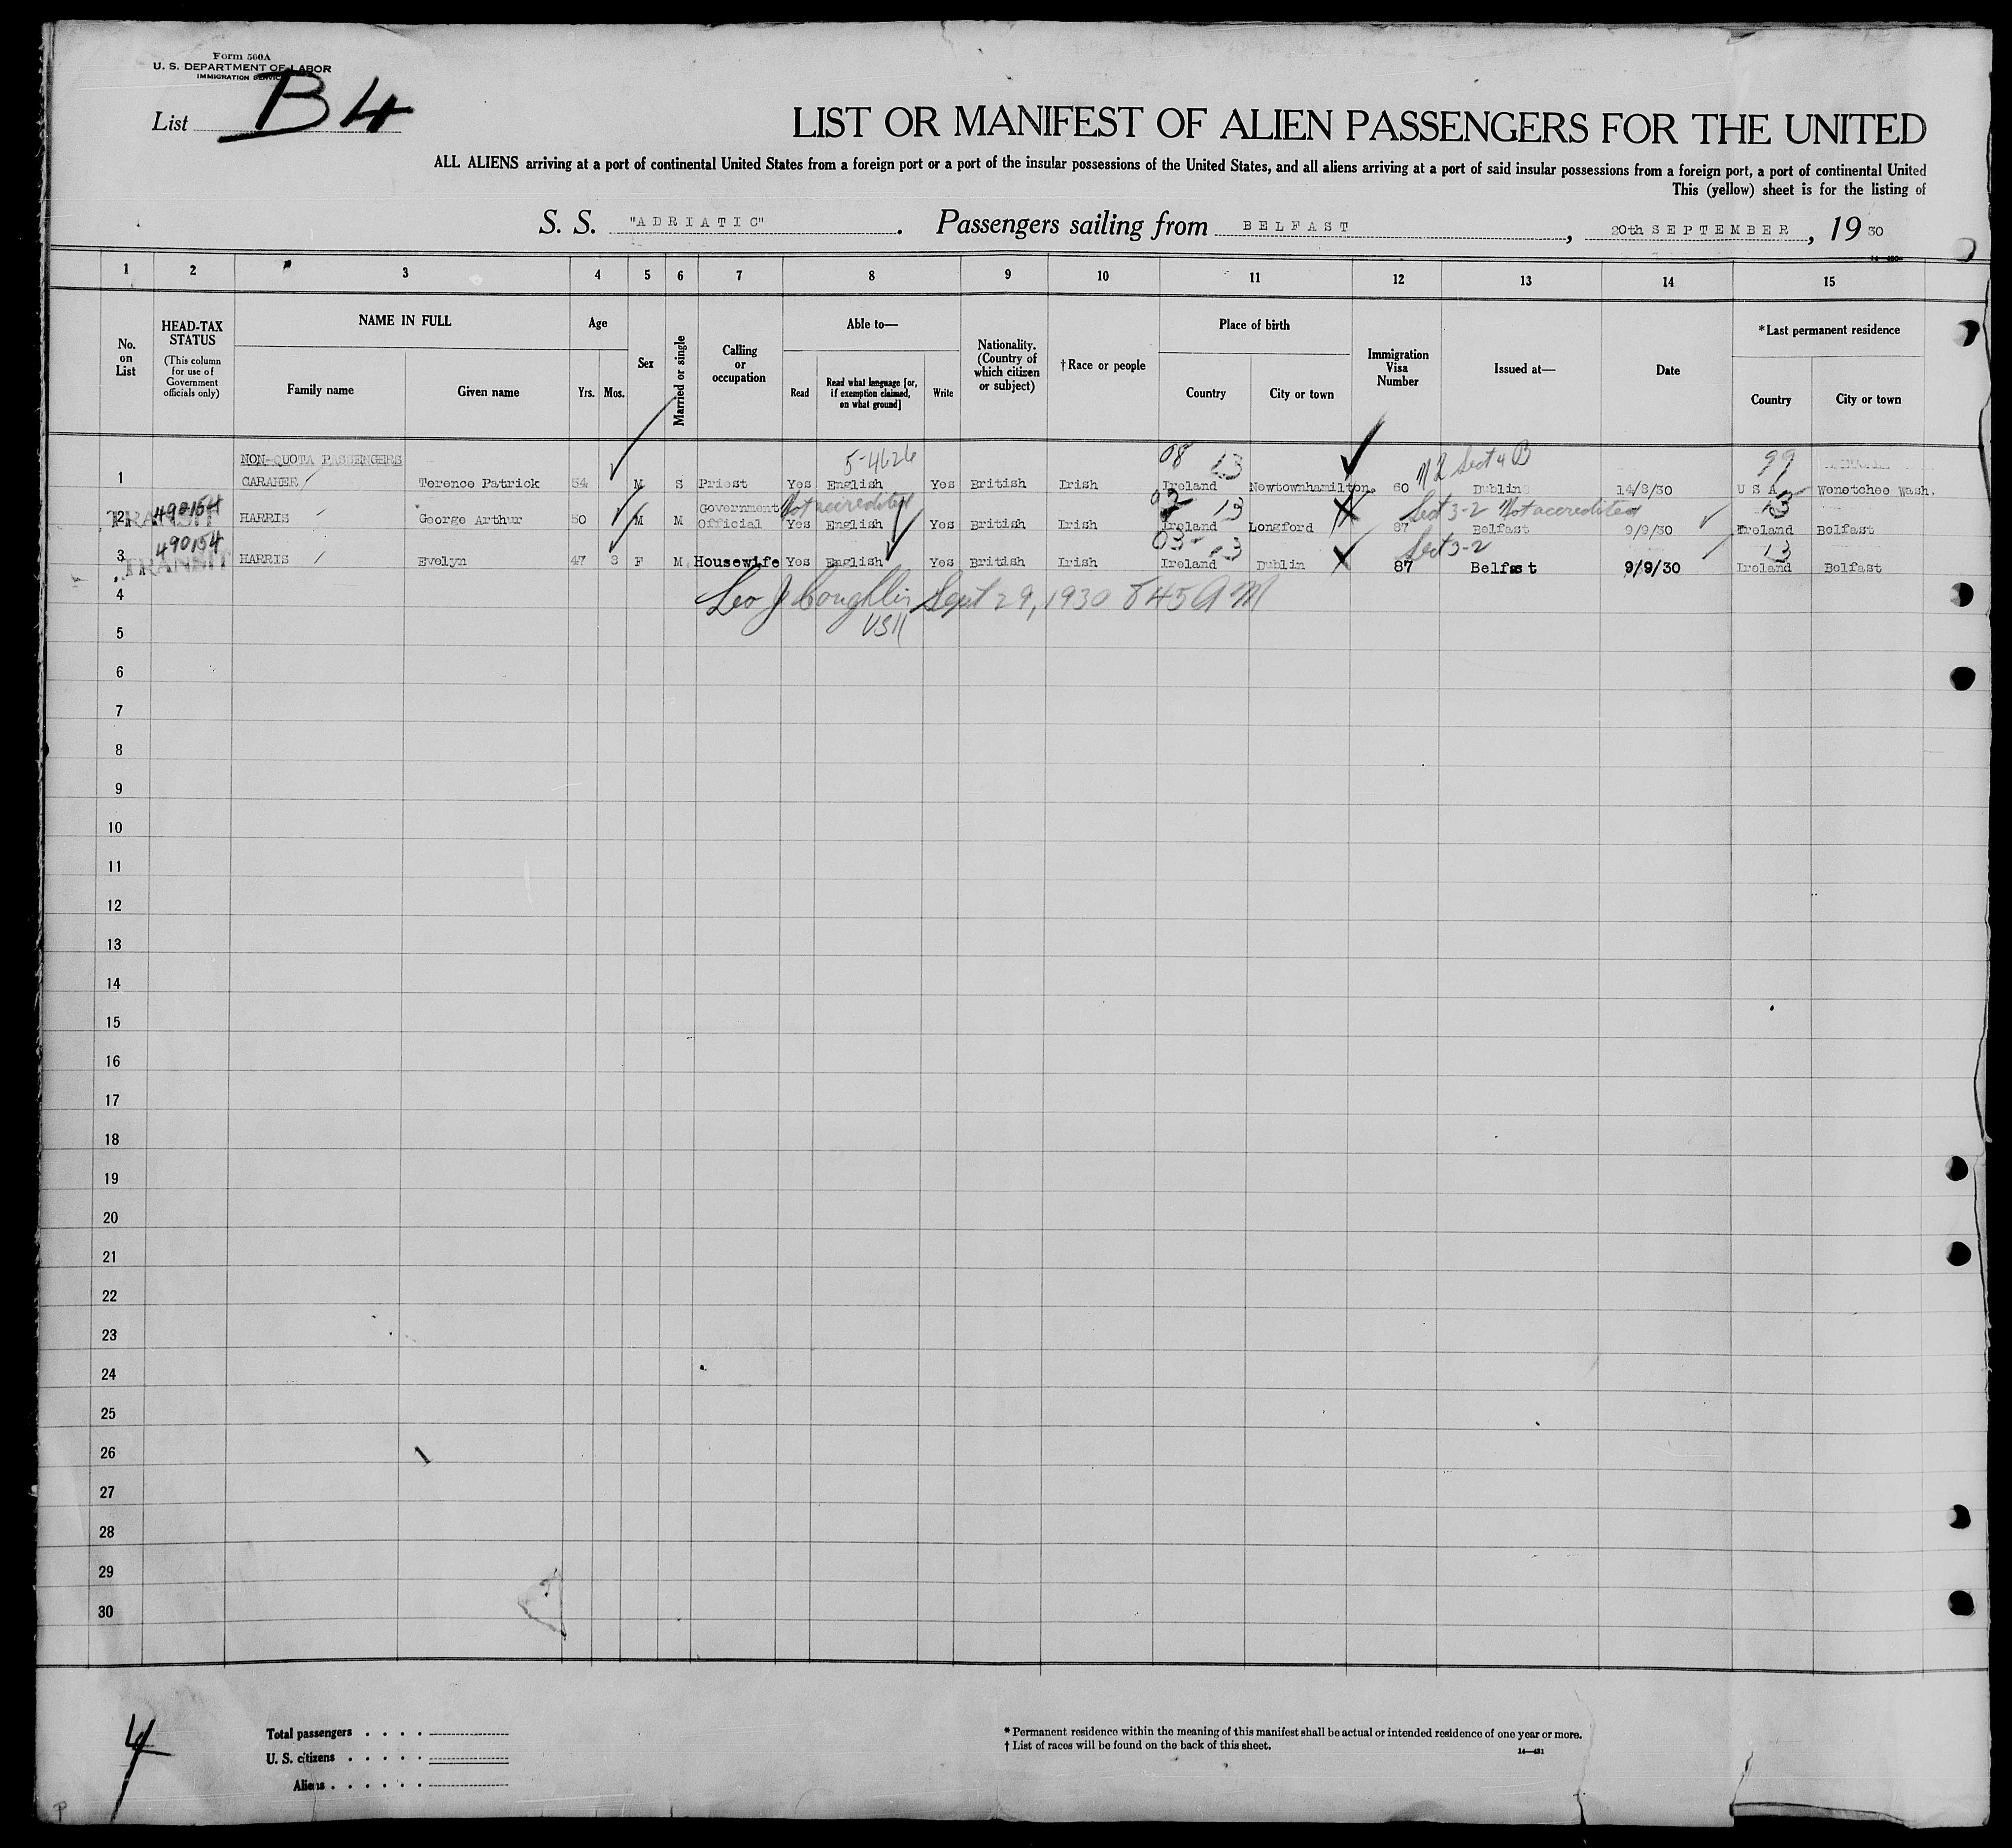 Form 500A
U. S. DEPARTMENT OF LABOR
IMMIGRATION SERVICE
List B4
LIST OR MANIFEST OF ALIEN PASSENGERS FOR THE UNITED
ALL ALIENS arriving at a port of continental United States from a foreign port or a port of the insular possessions of the United States, and all aliens arriving at a port of said insular possessions from a foreign port, a port of continental United
This (yellow) sheet is for the listing of
S. S. "ADRIATIC". Passengers sailing from BELFAST, 20th SEPTEMBER, 19 30
1 2 3 4 5 6 7 8 9 10 11 12 13 14 15
No. on List
HEAD-TAX STATUS (This column for use of Government officials only)
NAME IN FULL
Family name Given name
Age
Yrs. Mos.
Sex
Married or single
Calling or occupation
Able to—
Read Read what language [or, if exemption claimed, on what ground] Write
Nationality. (Country of which citizen or subject)
†Race or people
Place of birth
Country City or town
Immigration Visa Number
Issued at—
Date
*Last permanent residence
Country City or town
NON-QUOTA PASSENGERS 5-4626 08 13 Sect 4 B 99
1 CARAHER Terence Patrick 54 M S Priest Yes English Yes British Irish Ireland Newtownhamilton. 60 Dublin 14/8/30 U S A Wenetchee Wash.
490154 Not accredited 02 13 Sect 3-2 Not accredited 13
2 TRANSIT HARRIS George Arthur 50 M M Government Official Yes English Yes British Irish Ireland Longford 87 Belfast 9/9/30 Ireland Belfast
490154 03 13 Sect 3-2 13
3 TRANSIT HARRIS Evelyn 47 8 F M Housewife Yes English Yes British Irish Ireland Dublin 87 Belfast 9/9/30 Ireland Belfast
4 Leo J Coughlin Sept 29, 1930 845 AM
5
6
7
8
9
10
11
12
13
14
15
16
17
18
19
20
21
22
23
24
25
26
27
28
29
30
4
Total passengers
U. S. citizens
Aliens
* Permanent residence within the meaning of this manifest shall be actual or intended residence of one year or more.
† List of races will be found on the back of this sheet.
14—431
P